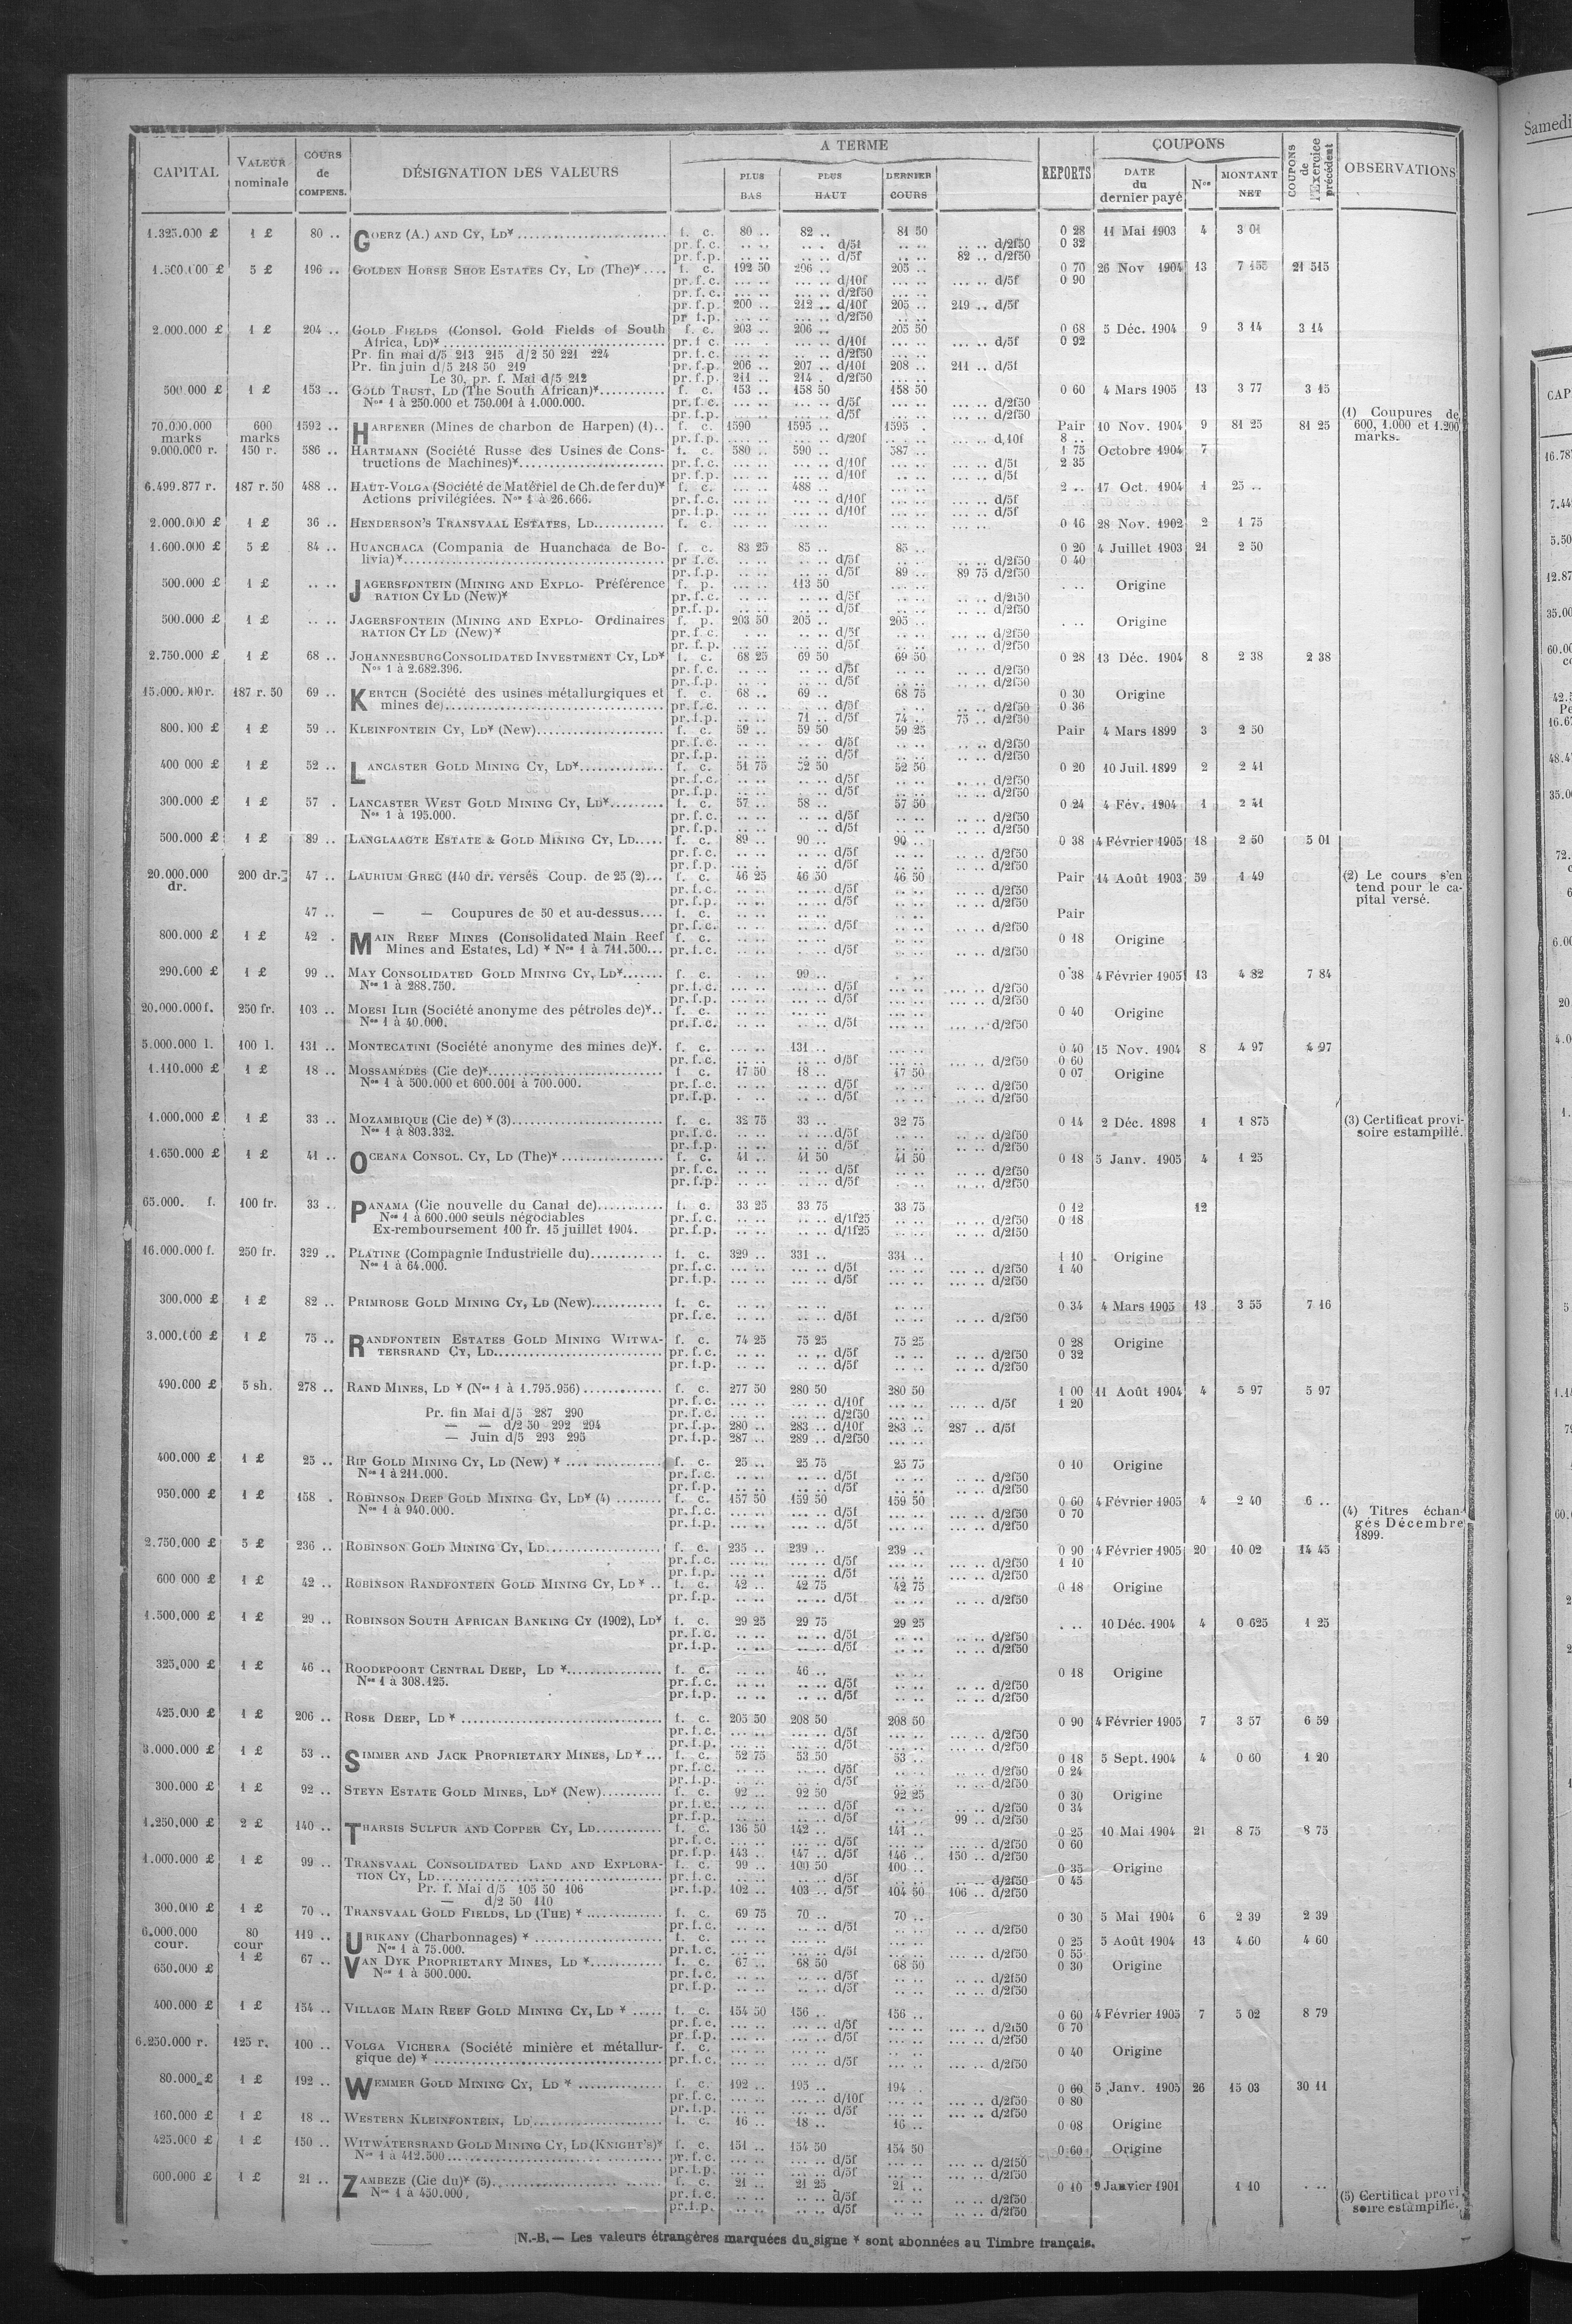 CAPITAL VALEUR nominale COURS de COMPENS. DÉSIGNATION DES VALEURS A TERME PLUS BAS PLUS HAUT DERNIER COURS REPORTS COUPONS DATE du dernier payé Nos MONTANT NET COUPONS de l'Exercice précédent OBSERVATIONS
1.325.000 £ 1 £ 80 .. GOERZ (A.) AND CY, LD* f. c. 80 .. 82 .. 81 50 0 28 11 Mai 1903 4 3 01
pr. f. c. .. .. .. .. d/5f .. .. .. .. d/2f50 0 32
pr. f. p. .. .. .. .. d/5f .. .. 82 .. d/2f50
5 £ 196 .. GOLDEN HORSE SHOE ESTATES CY, LD (The)* f. c. 192 50 206 .. 205 .. 0 70 26 Nov 1904 13 7 155 21 515
pr. f. c. d/10f d/5f 0 90
pr. f. c. d/2f50
pr. f. p. 200 .. 212 .. d/10f 205 .. 219 .. d/5f
pr f. p. d/2f50
2.000.000 £ 1 £ 204 .. GOLD FIELDS (Consol. Gold Fields of South f. c. 203 .. 206 .. 205 50 0 68 5 Déc. 1904 9 3 14 3 14
Africa, LD)* pr. f. c. d/10f d/5f 0 92
Pr. fin mai d/5 213 215 d/2 50 221 224 pr. f. c. d/2f50
Pr. fin juin d/5 218 50 219 pr. f. p. 206 .. 207 .. d/10f 208 .. 211 .. d/5f
Le 30, pr. f. Mai d/5 212 pr. f. p. 211 .. 214 . d/2f50
500.000 £ 1 £ 153 .. GOLD TRUST, LD (The South African)* f. c. 153 .. 158 50 158 50 0 60 4 Mars 1905 13 3 77 3 15
Nos 1 à 250.000 et 750.001 à 1.000.000. pr. f. c. d/5f d/2f50
pr. f. p. d/5f d/2f50
(1) Coupures de 600, 1.000 et 1.200 marks.
70.000.000 marks 600 marks 1592 .. HARPENER (Mines de charbon de Harpen) (1).. f. c. 1590 1595 .. 1595 . Pair 10 Nov. 1904 9 81 25 81 25
pr. f. p. d/20f d/10f 8 ..
9.000.000 r. 150 r. 586 .. HARTMANN (Société Russe des Usines de Cons- f. c. 580 .. 590 .. 587 .. 1 75 Octobre 1904 7
tructions de Machines)* pr. f. c. d/10f d/5f 2 35
pr. f. p. d/10f d/5f
6.499.877 r. 187 r. 50 488 .. HAUT-VOLGA (Société de Matériel de Ch. de fer du)* f. c. 488 .. 2 .. 17 Oct. 1904 1 25 ..
Actions privilégiées. Nos 1 à 26.666. pr. f. c. d/10f d/5f
pr. f. p. d/10f d/5f
2.000.000 £ 1 £ 36 .. HENDERSON'S TRANSVAAL ESTATES, LD f. c. 0 16 28 Nov. 1902 2 1 75
1.600.000 £ 5 £ 84 .. HUANCHACA (Compania de Huanchaca de Bo- f. c. 83 25 85 .. 85 .. 0 20 4 Juillet 1903 21 2 50
livia)* pr f. c. d/5f d/2f50 0 40
pr. f. p. d/5f 89 .. 89 75 d/2f50
500.000 £ 1 £ JAGERSFONTEIN (MINING AND EXPLO- Préférence f. p. 113 50 Origine
RATION CY LD (New)* pr. f. c. d/5f d/2f50
pr. f. p. d/5f d/2f50
500.000 £ 1 £ JAGERSFONTEIN (MINING AND EXPLO- Ordinaires f. p. 203 50 205 .. 205 .. Origine
RATION CY LD (New)* pr. f. c. d/5f d/2f50
pr. f. p. d/5f d/2f50
2.750.000 £ 1 £ 68 .. JOHANNESBURG CONSOLIDATED INVESTMENT CY, LD* f. c. 68 25 69 50 69 50 0 28 13 Déc. 1904 8 2 38 2 38
Nos 1 à 2.682.396. pr. f. c. d/5f d/2f50
pr. f. p. d/5f d/2f50
187 r. 50 69 .. KERTCH (Société des usines métallurgiques et f. c. 68 .. 69 .. 68 75 0 30 Origine
mines de) pr. f. c. d/5f d/2f50 0 36
pr. f. p. 71 .. d/5f 74 . 75 .. d/2f50
1 £ 59 .. KLEINFONTEIN CY, LD* (New) f. c. 59 .. 59 50 59 25 Pair 4 Mars 1899 3 2 50
pr. f. c. d/5f d/2f50
pr. f. p. d/5f d/2f50
400 000 £ 1 £ 52 .. LANCASTER GOLD MINING CY, LD* f. c. 51 75 52 50 52 50 0 20 10 Juil. 1899 2 2 41
pr. f. c. d/5f d/2f50
pr. f. p. d/5f d/2f50
300.000 £ 1 £ 57 . LANCASTER WEST GOLD MINING CY, LD* f. c. 57 .. 58 .. 57 50 0 24 4 Fév. 1904 1 2 41
Nos 1 à 195.000. pr. f. c. d/5f d/2f50
pr. f. p. d/5f d/2f50
500.000 £ 1 £ 89 .. LANGLAAGTE ESTATE & GOLD MINING CY, LD f. c. 89 .. 90 .. 90 .. 0 38 4 Février 1905 18 2 50 5 01
pr. f. c. d/5f d/2f50
pr. f. p. d/5f d/2f50
20.000.000 dr. 200 dr. 47 .. LAURIUM GREC (140 dr. versés Coup. de 25 (2) f. c. 46 25 46 50 46 50 Pair 14 Août 1903 59 1 49 (2) Le cours s'en
pr. f. c. d/5f d/2f50 tend pour le ca-
pr. f. p. d/5f d/2f50 pital versé.
47 .. — — Coupures de 50 et au-dessus f. c. Pair
pr. f. c. d/5f d/2f50
800.000 £ 1 £ 42 . MAIN REEF MINES (Consolidated Main Reef f. c. 0 18 Origine
Mines and Estates, Ld) * Nos 1 à 711.500 pr. f. c. d/5f d/2f50
290.000 £ 1 £ 99 .. MAY CONSOLIDATED GOLD MINING CY, LD* f. c. 99 .. 0 38 4 Février 1905 13 4 82 7 84
Nos 1 à 288.750. pr. f. c. d/5f d/2f50
pr. f. p. d/5f d/2f50
20.000.000 f. 250 fr. 103 .. MOESI ILIR (Société anonyme des pétroles de)* f. c. 0 40 Origine
Nos 1 à 40.000. pr. f. c. d/5f d/2f50
5.000.000 l. 100 l. 131 .. MONTECATINI (Société anonyme des mines de)*. f. c. 131 .. 0 40 15 Nov. 1904 8 4 97 4 97
pr. f. c. d/5f d/2f50 0 60
1.110.000 £ 1 £ 18 .. MOSSAMÉDÈS (Cie de)* f. c. 17 50 18 .. 17 50 0 07 Origine
Nos 1 à 500.000 et 600.001 à 700.000. pr. f. c. d/5f d/2f50
pr. f. p. d/5f d/2f50
1.000,000 £ 1 £ 33 .. MOZAMBIQUE (Cie de) * (3) f. c. 32 75 33 .. 32 75 0 14 2 Déc. 1898 1 1 875 (3) Certificat provi-
Nos 1 à 803.332. pr. f. c. d/5f d/2f50 soire estampillé.
pr. f. p. d/5f d/2f50
1.650.000 £ 1 £ 41 .. OCEANA CONSOL. CY, LD (The)* f. c. 41 .. 41 50 41 50 0 18 5 Janv. 1905 4 1 25
pr. f. c. d/5f d/2f50
pr. f. p. d/5f d/2f50
65.000. f. 100 fr. 33 .. PANAMA (Cie nouvelle du Canal de) f. c. 33 25 33 75 33 75 0 12 12
Nos 1 à 600.000 seuls négociables pr. f. c. d/1f25 d/2f50 0 18
Ex-remboursement 100 fr. 15 juillet 1904. pr. f. p. d/1f25 d/2f50
16.000.000 f. 250 fr. 329 .. PLATINE (Compagnie Industrielle du) f. c. 329 .. 331 .. 331 .. 1 10 Origine
Nos 1 à 64.000. pr. f. c. d/5f d/2f50 1 40
pr. f. p. d/5f d/2f50
300.000 £ 1 £ 82 .. PRIMROSE GOLD MINING CY, LD (New) f. c. 0 34 4 Mars 1905 13 3 55 7 16
pr. f. c. d/5f d/2f50
1 £ 75 .. RANDFONTEIN ESTATES GOLD MINING WITWA- f. c. 74 25 75 25 75 25 0 28 Origine
TERSRAND CY, LD pr. f. c. d/5f d/2f50 0 32
pr. f. p. d/5f d/2f50
490.000 £ 5 sh. 278 .. RAND MINES, LD * (Nos 1 à 1.795.956) f. c. 277 50 280 50 280 50 1 00 11 Août 1904 4 5 97 5 97
pr. f. c. d/10f d/5f 1 20
Pr. fin Mai d/5 287 290 pr. f. c. d/2f50
— — d/2 50 292 294 pr. f. p. 280 .. 283 .. d/10f 283 .. 287 .. d/5f
— Juin d/5 293 295 pr. f. p. 287 .. 289 .. d/2f50
400.000 £ 1 £ 25 .. RIP GOLD MINING CY, LD (New) * f. c. 25 .. 25 75 25 75 0 10 Origine
Nos 1 à 211.000. pr. f. c. d/5f d/2f50
pr. f. p. d/5f d/2f50
950.000 £ 1 £ 158 . ROBINSON DEEP GOLD MINING CY, LD* (4) f. c. 157 50 159 50 159 50 0 60 4 Février 1905 4 2 40 6 ..
Nos 1 à 940.000. pr. f. c. d/5f d/2f50 0 70 (4) Titres échan-
pr. f. p. d/5f d/2f50 gés Décembre
1899.
2.750.000 £ 5 £ 236 . ROBINSON GOLD MINING CY, LD f. c. 235 .. 239 .. 239 .. 0 90 4 Février 1905 20 10 02 14 45
pr. f. c. d/5f d/2f50 1 10
pr. f. p. d/5f d/2f50
600 000 £ 1 £ 42 .. ROBINSON RANDFONTEIN GOLD MINING CY, LD * f. c. 42 .. 42 75 42 75 0 18 Origine
pr. f. p. d/5f d/2f50
1.500,000 £ 1 £ 29 .. ROBINSON SOUTH AFRICAN BANKING CY (1902), LD* f. c. 29 25 29 75 29 25 10 Déc. 1904 4 0 625 1 25
pr. f. c. d/5f d/2f50
pr. f. p. d/5f d/2f50
325.000 £ 1 £ 46 .. ROODEPOORT CENTRAL DEEP, LD * f. c. 46 .. 0 18 Origine
Nos 1 à 308.125. pr. f. c. d/5f d/2f50
pr. f. p. d/5f d/2f50
425.000 £ 1 £ 206 .. ROSE DEEP, LD * f. c. 205 50 208 50 208 50 0 90 4 Février 1905 7 3 57 6 59
pr. f. c. d/5f d/2f50
pr. f. p. d/5f d/2f50
3.000.000 £ 1 £ 53 .. SIMMER AND JACK PROPRIETARY MINES, LD * f. c. 52 75 53 50 53 .. 0 18 5 Sept. 1904 4 0 60 1 20
pr. f. c. d/5f d/2f50 0 24
pr. f. p. d/5f d/2f50
300.000 £ 1 £ 92 .. STEYN ESTATE GOLD MINES, LD* (New) f. c. 92 .. 92 50 92 25 0 30 Origine
pr. f. c. d/5f d/2f50 0 34
pr. f. p. d/5f 99 .. d/2f50
1.250,000 £ 2 £ 140 .. THARSIS SULFUR AND COPPER CY, LD f. c. 136 50 142 .. 141 .. 0 25 10 Mai 1904 21 8 75 8 75
pr. f. c. d/5f d/2f50 0 60
pr. f. p. 143 .. 147 .. d/5f 146 .. 150 .. d/2f50
1.000.000 £ 1 £ 99 .. TRANSVAAL CONSOLIDATED LAND AND EXPLORA- f. c. 99 .. 100 50 100 .. 0 35 Origine
TION CY, LD pr. f. c. d/5f d/2f50 0 45
Pr. f. Mai d/5 105 50 106 pr. f. p. 102 .. 103 .. d/5f 104 50 106 .. d/2f50
— d/2 50 110
300.000 £ 1 £ 70 .. TRANSVAAL GOLD FIELDS, LD (THE) * f. c. 69 75 70 .. 70 .. 0 30 5 Mai 1904 6 2 39 2 39
pr. f. c. d/5f d/2f50
6.000.000 cour. 80 cour 119 .. URIKANY (Charbonnages) * f. c. 0 25 5 Août 1904 13 4 60 4 60
Nos 1 à 75.000. pr. f. c. d/5f d/2f50 0 55
650.000 £ 1 £ 67 .. VAN DYK PROPRIETARY MINES, LD * f. c. 67 .. 68 50 68 50 0 30 Origine
Nos 1 à 500.000. pr. f. c. d/5f d/2f50
pr. f. p. d/5f d/2f50
400.000 £ 1 £ 154 .. VILLAGE MAIN REEF GOLD MINING CY, LD * f. c. 154 50 156 .. 156 .. 0 60 4 Février 1905 7 5 02 8 79
pr. f. c. d/5f d/2f50 0 70
pr. f. p. d/5f d/2f50
6.250.000 r. 125 r. 100 .. VOLGA VICHERA (Société minière et métallur- f. c. 0 40 Origine
gique de) * pr. f. c. d/5f d/2f50
80.000 £ 1 £ 192 .. WEMMER GOLD MINING CY, LD * f. c. 192 .. 195 .. 194 . 0 60 5 Janv. 1905 26 15 03 30 11
pr. f. c. d/10f d/2f50 0 80
pr. f. p. d/5f d/2f50
160.000 £ 1 £ 18 .. WESTERN KLEINFONTEIN, LD f. c. 16 .. 18 .. 16 .. 0 08 Origine
425.000 £ 1 £ 150 .. WITWATERSRAND GOLD MINING CY, LD (KNIGHT'S)* f. c. 151 .. 154 50 154 50 0 60 Origine
Nos 1 à 412.500 pr. f. c. d/5f d/2f50
pr. f. p. d/5f d/2f50
600.000 £ 1 £ 21 .. ZAMBEZE (Cie du)* (5) f. c. 21 .. 21 25 21 .. 0 10 9 Janvier 1901 1 10
Nos 1 à 450.000. pr. f. c. d/5f d/2f50 (5) Certificat provi
pr. f. p. d/5f d/2f50 soire estampillé.
N.-B. — Les valeurs étrangères marquées du signe * sont abonnées au Timbre français.
Samedi